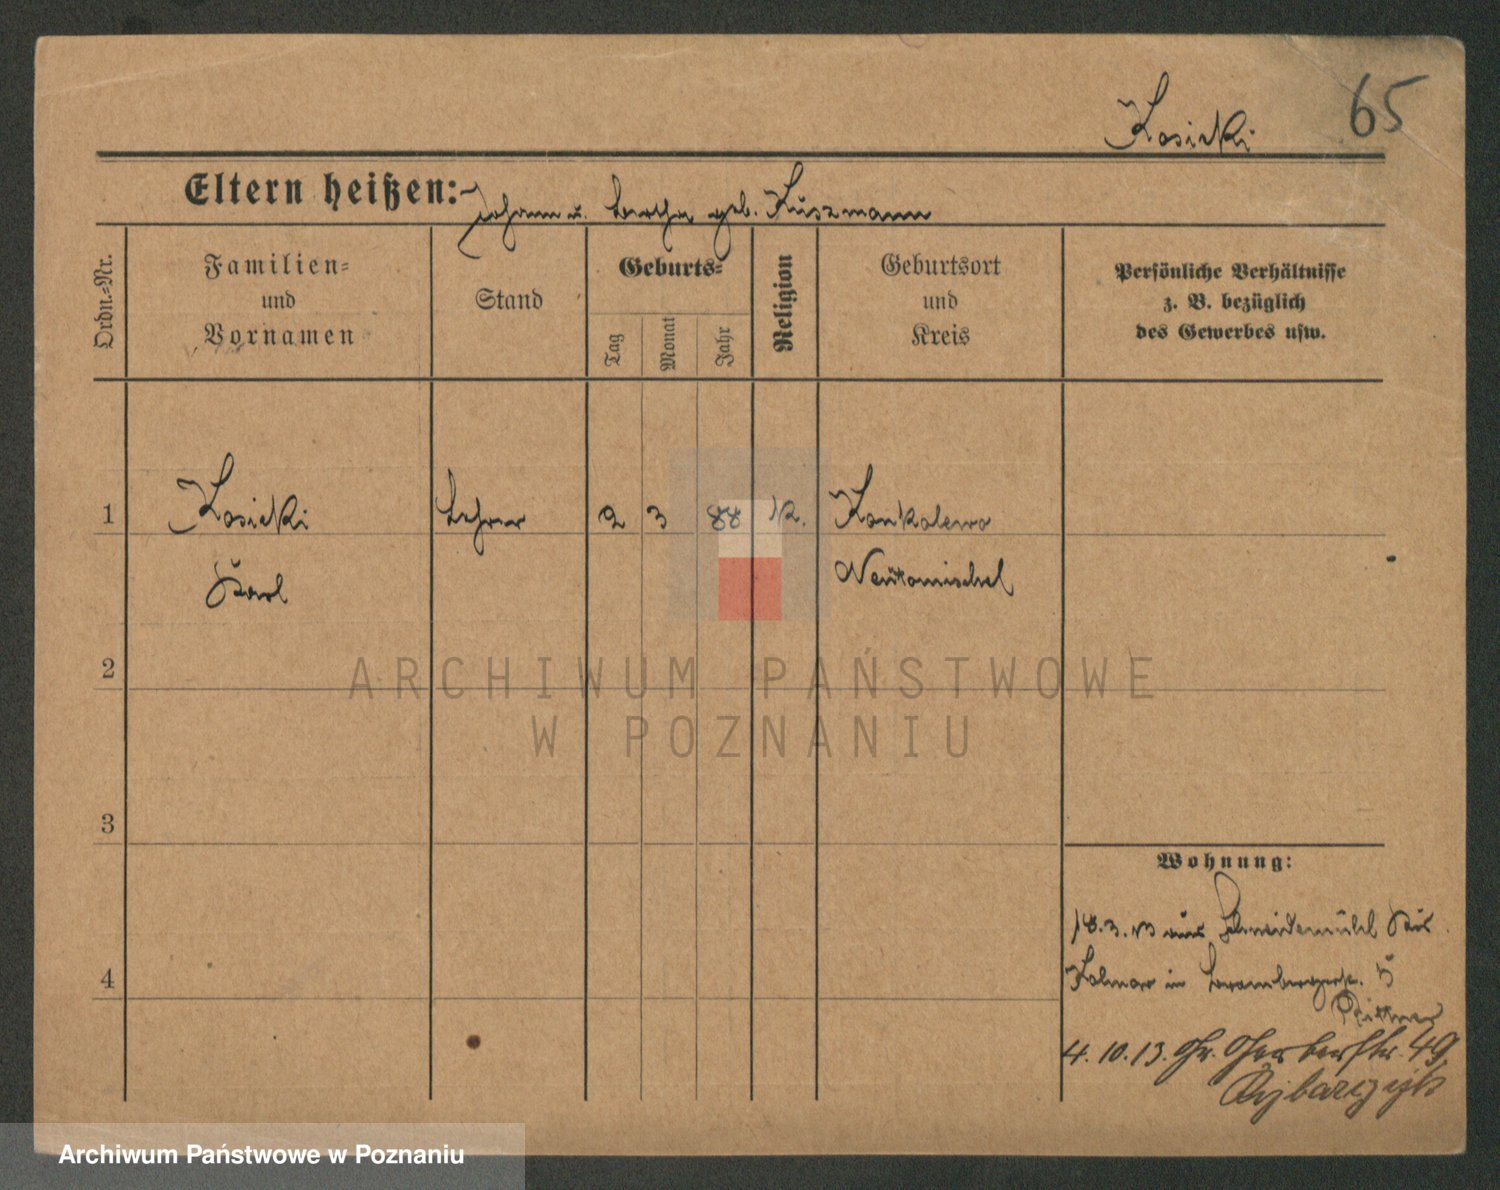 Kosicki 65
Eltern heißen: Johann u. Bertha geb. Kuszmann
Ordn.-Nr.
Familien-
und
Vornamen
Stand
Geburts-
Tag
Monat
Jahr
Religion
Geburtsort
und
Kreis
Persönliche Verhältnisse
z. B. bezüglich
des Gewerbes usw.
1 Kosicki Lehrer 2 3 88 K. Konkolewo
Karl Neutomischel
2
ARCHIWUM PAŃSTWOWE
W POZNANIU
3
Wohnung:
18.3.13 aus Schneidemühl Krs.
4
Kolmar in Brombergerstr. 5
Bittner
4.10.13. Gr. Gerberstr. 49
Rybarczyk
Archiwum Państwowe w Poznaniu